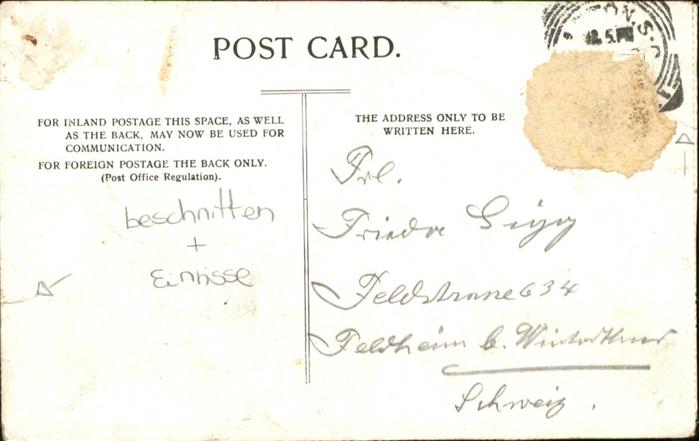 POST CARD.
TON.S.O
12.5.PM
FOR INLAND POSTAGE THIS SPACE, AS WELL
AS THE BACK, MAY NOW BE USED FOR
COMMUNICATION.
FOR FOREIGN POSTAGE THE BACK ONLY.
(Post Office Regulation).
THE ADDRESS ONLY TO BE
WRITTEN HERE.
beschnitten
+
Einrisse
Frl.
Frieda Sigg
Feldstrasse 634
Feldheim b. Winterthur
Schweiz.